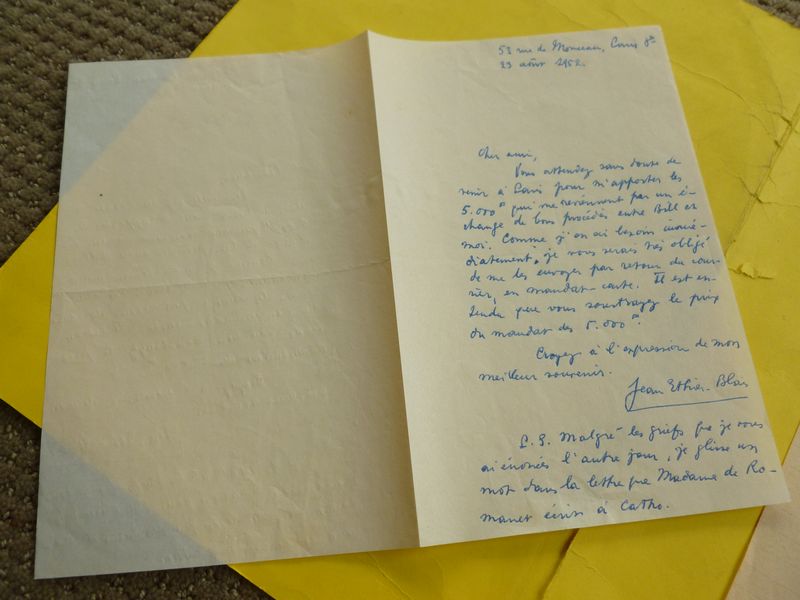 53 rue de Monceau, Paris 8e
23 août 1952.
Cher ami,
Vous attendez sans doute de
venir à Paris pour m'apporter les
5.000 F qui me reviennent par un é-
change de bons procédés entre Bill et
moi. Comme j'en ai besoin immé-
diatement, je vous serais très obligé
de me les envoyer par retour du cour-
rier, en mandat-carte. Il est en-
tendu que vous soustrayez le prix
du mandat des 5.000 F.
Croyez à l'expression de mon
meilleur souvenir.
Jean Ethier-Blais
P. S. Malgré les griefs que je vous
ai énoncés l'autre jour, je glisse un
mot dans la lettre que Madame de Ro-
manet écrit à Catho.